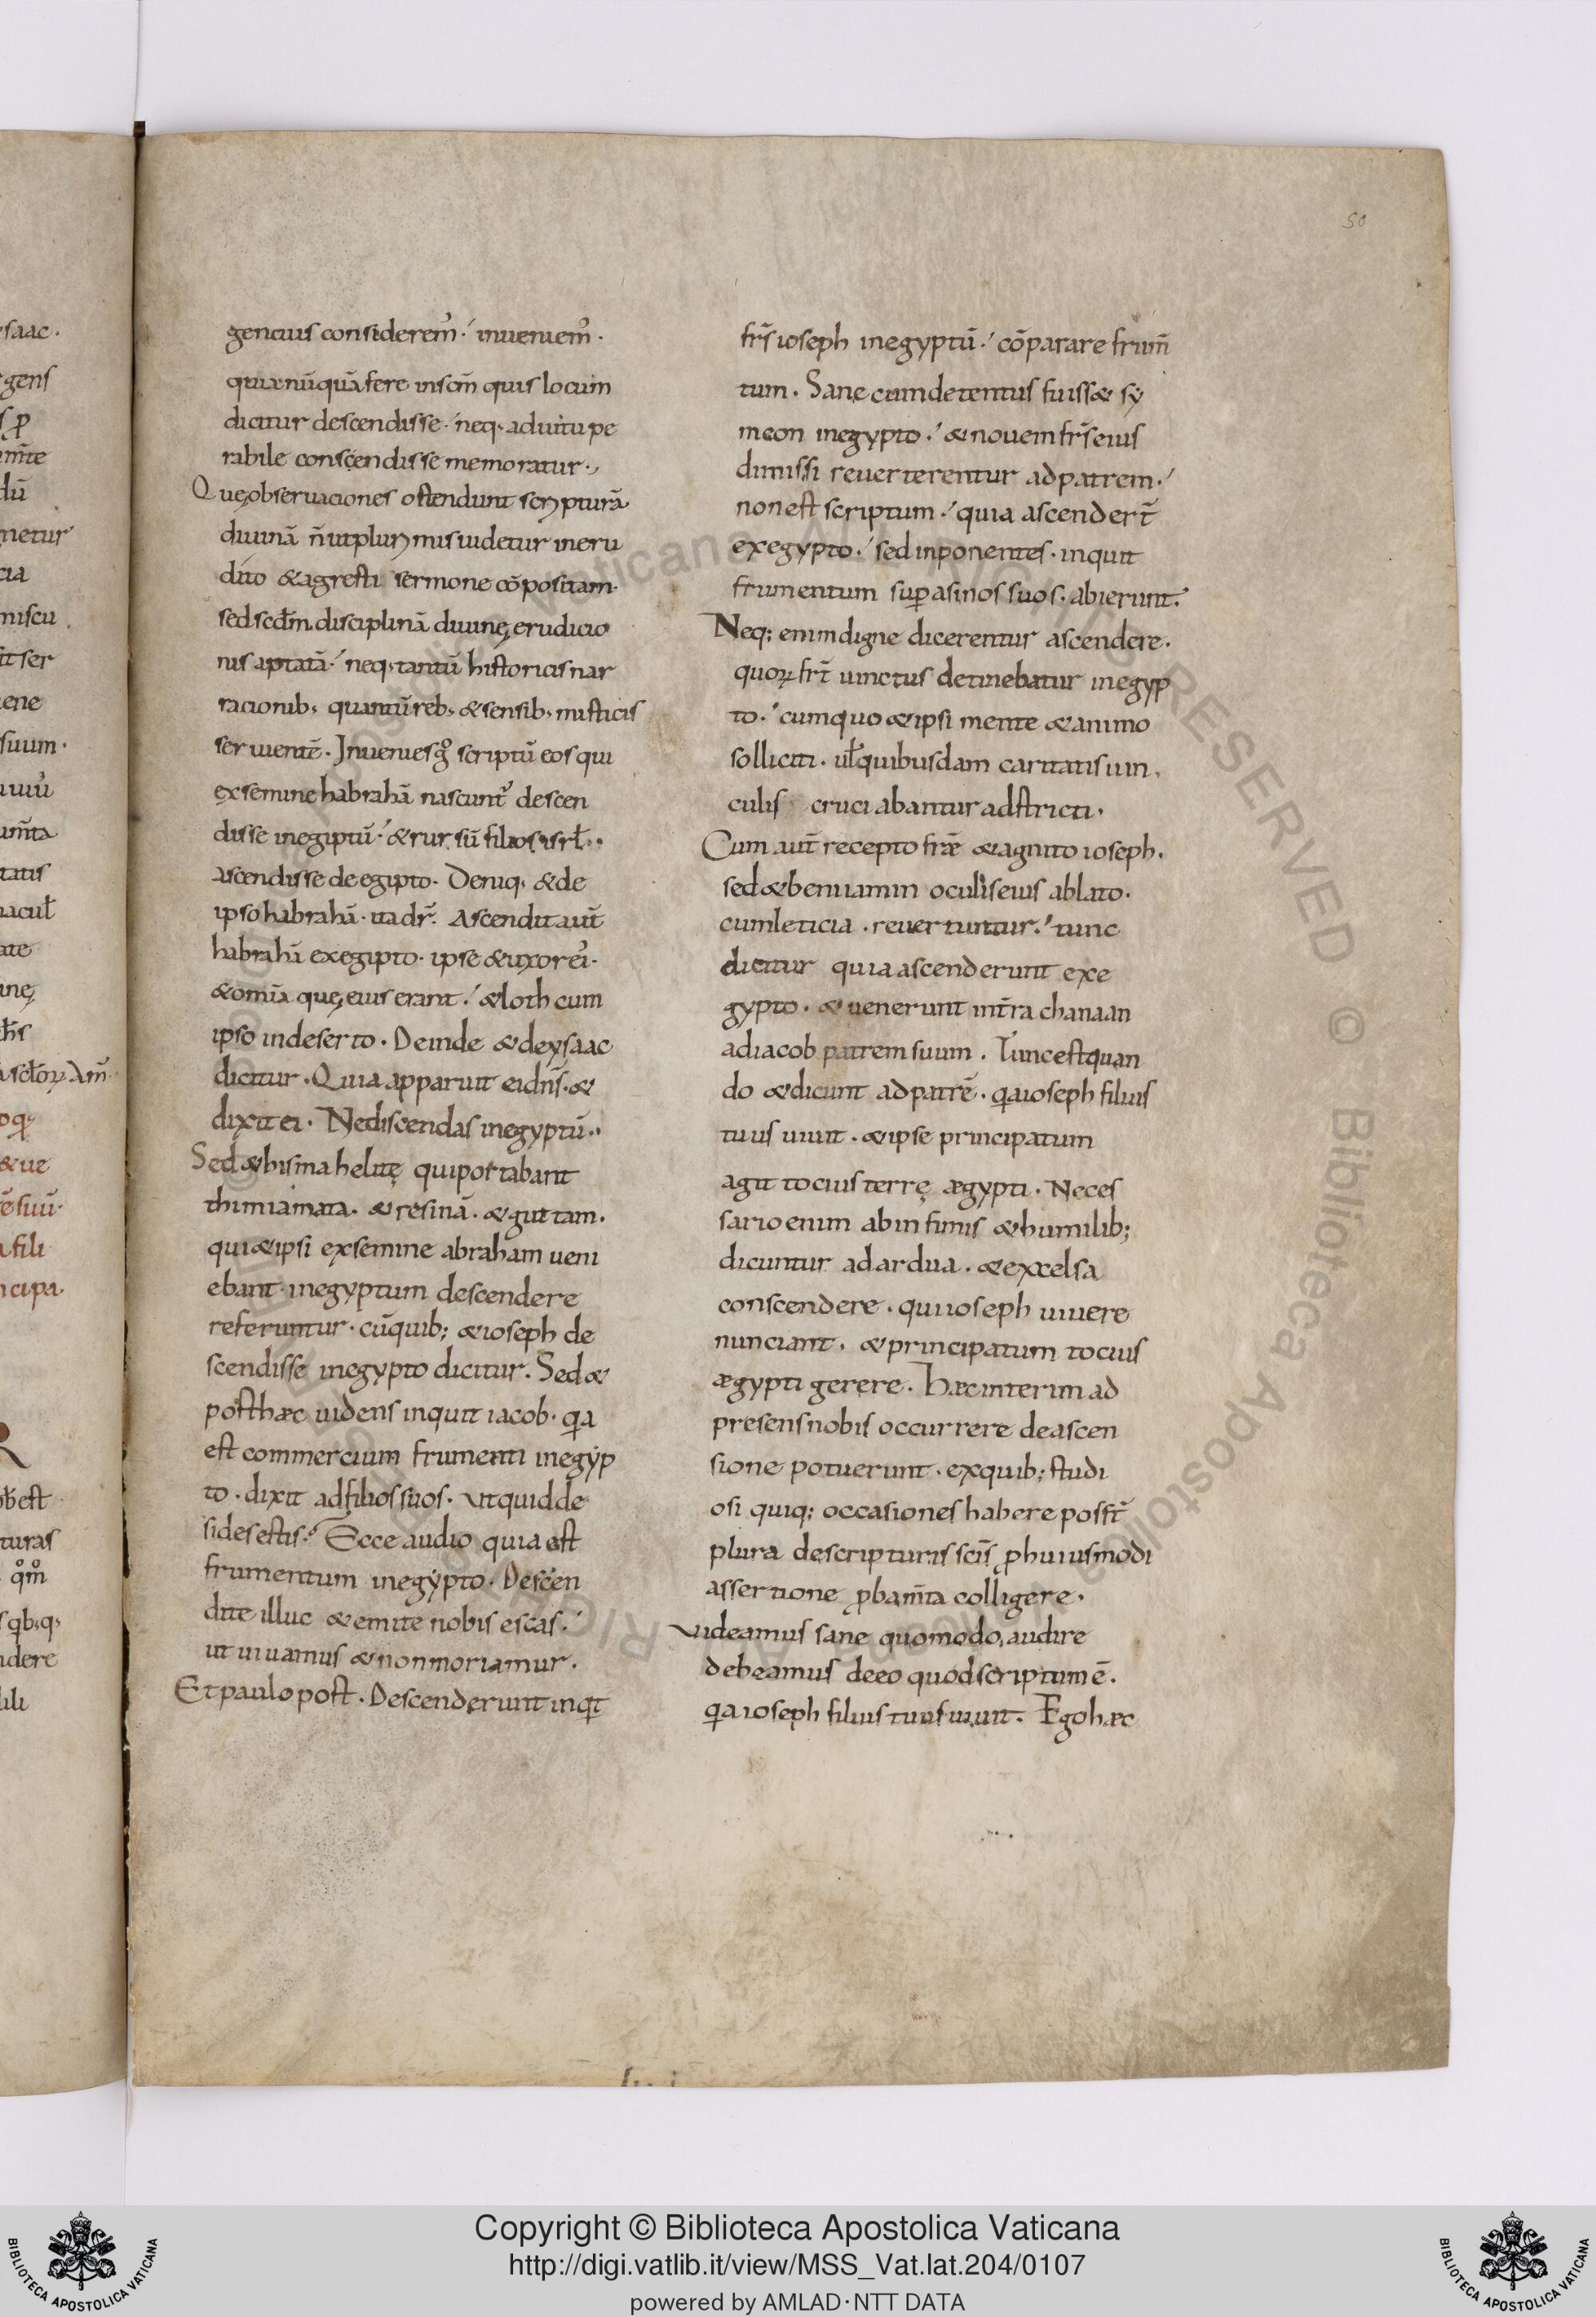 50
gencius considerem᾽ ⁘ inueniem᾽ ·
quia nū quā fere in scōn quis locum
dicitur descendisse ·/ neq; ad uitupe
rabile conscendisse memoratur ·,
Quę obseruaciones ostendunt scripturā
diuinā n̄ ut plurimis uidetur ineru
dito & agresti sermone cōpositam ·
sed scdm̄ disciplinā diuinę erudicio
nis aptatā ·/ neq; tantū historicis nar
racionib; quantū reb; & sensib; misticis
seruientē · Inuenies gͦ scriptū eos qui
ex semine habrahā nascunt᾽ descen
disse in egiptū ·/ & rursū filios isrł ··
ascendisse de egipto · Deniq; & de
ipso habrahā · ita dr̄ · Ascendit aut̄
habrahā ex egipto · ipse & uxor ei᾽ ·
& om̄ia quę eius erant ·/ & loth cum
ipso in deserto · Deinde & de ysaac
dicitur · Quia apparuit ei dn̄s · &
dixit ei · Ne discendas in egyptū ··
Sed & hismahelitę qui portabant
thimiamata · & resinā · & guttam ·
qui & ipsi ex semine abraham ueni
ebant in egyptum descendere
referuntur · cū quib; & ioseph de
scendisse in egypto dicitur · Sed &
post hæc uidens inquit iacob · qa
est commercium frumenti in egyp
to · dixit ad filios suos · Ut quid de
sides estis ·/ Ecce audio quia est
frumentum in egypto · Descen
dite illuc & emite nobis escas ·/
ut uiuamus & non moriamur ·
Et paulo post · Descenderunt inqt
frs̄ ioseph in egyptū ·/ cōparare frum̄
tum · Sane cum detentus fuiss& sy
meon in egypto ·/ & nouem frs̄ eius
dimissi reuerterentur ad patrem ·/
non est scriptum ·/ quia ascendert̄
ex egypto ·/ sed inponentes · inquit
frumentum sup asinos suos · abierunt ·/
Neq; enim digne dicerentur ascendere ·
quoꝝ frt̄ uinctus detinebatur in egyp
to ·/ cum quo & ipsi mente & animo
solliciti · uł quibusdam caritatis uin
culis cruciabantur adstricti ·
Cum aut̄ recepto frē & agnito ioseph ·
sed & beniamin oculis eius ablato ·
cum leticia · reuertuntur ·/ tunc
dicitur quia ascenderunt ex e
gypto · & uenerunt in tr̄ra chanaan
ad iacob patrem suum · Tunc est quan
do & dicunt ad patrē · qa ioseph filius
tuus uiuit · & ipse principatum
agit tocius terrę ægypti · Neces
sario enim ab infimis & humilib;
dicuntur ad ardua · & excelsa
conscendere · qui ioseph uiuere
nunciant · & principatum tocius
ægypti gerere · Hæc interim ad
presens nobis occurrere de ascen
sione potuerunt · ex quib; studi
osi quiq; occasiones habere posst̄
plura de scripturis scīs ꝓ huiusmodi
assertione ꝓbam̄ta colligere ·
Videamus sane quomodo audire
debeamus de eo quod scriptum ē ·
qa ioseph filius tuus uiuit · Ego hæc
Copyright © Biblioteca Apostolica Vaticana
http://digi.vatlib.it/view/MSS_Vat.lat.204/0107
powered by AMLAD·NTT DATA
BIBLIOTECA APOSTOLICA VATICANA
BIBLIOTECA APOSTOLICA VATICANA